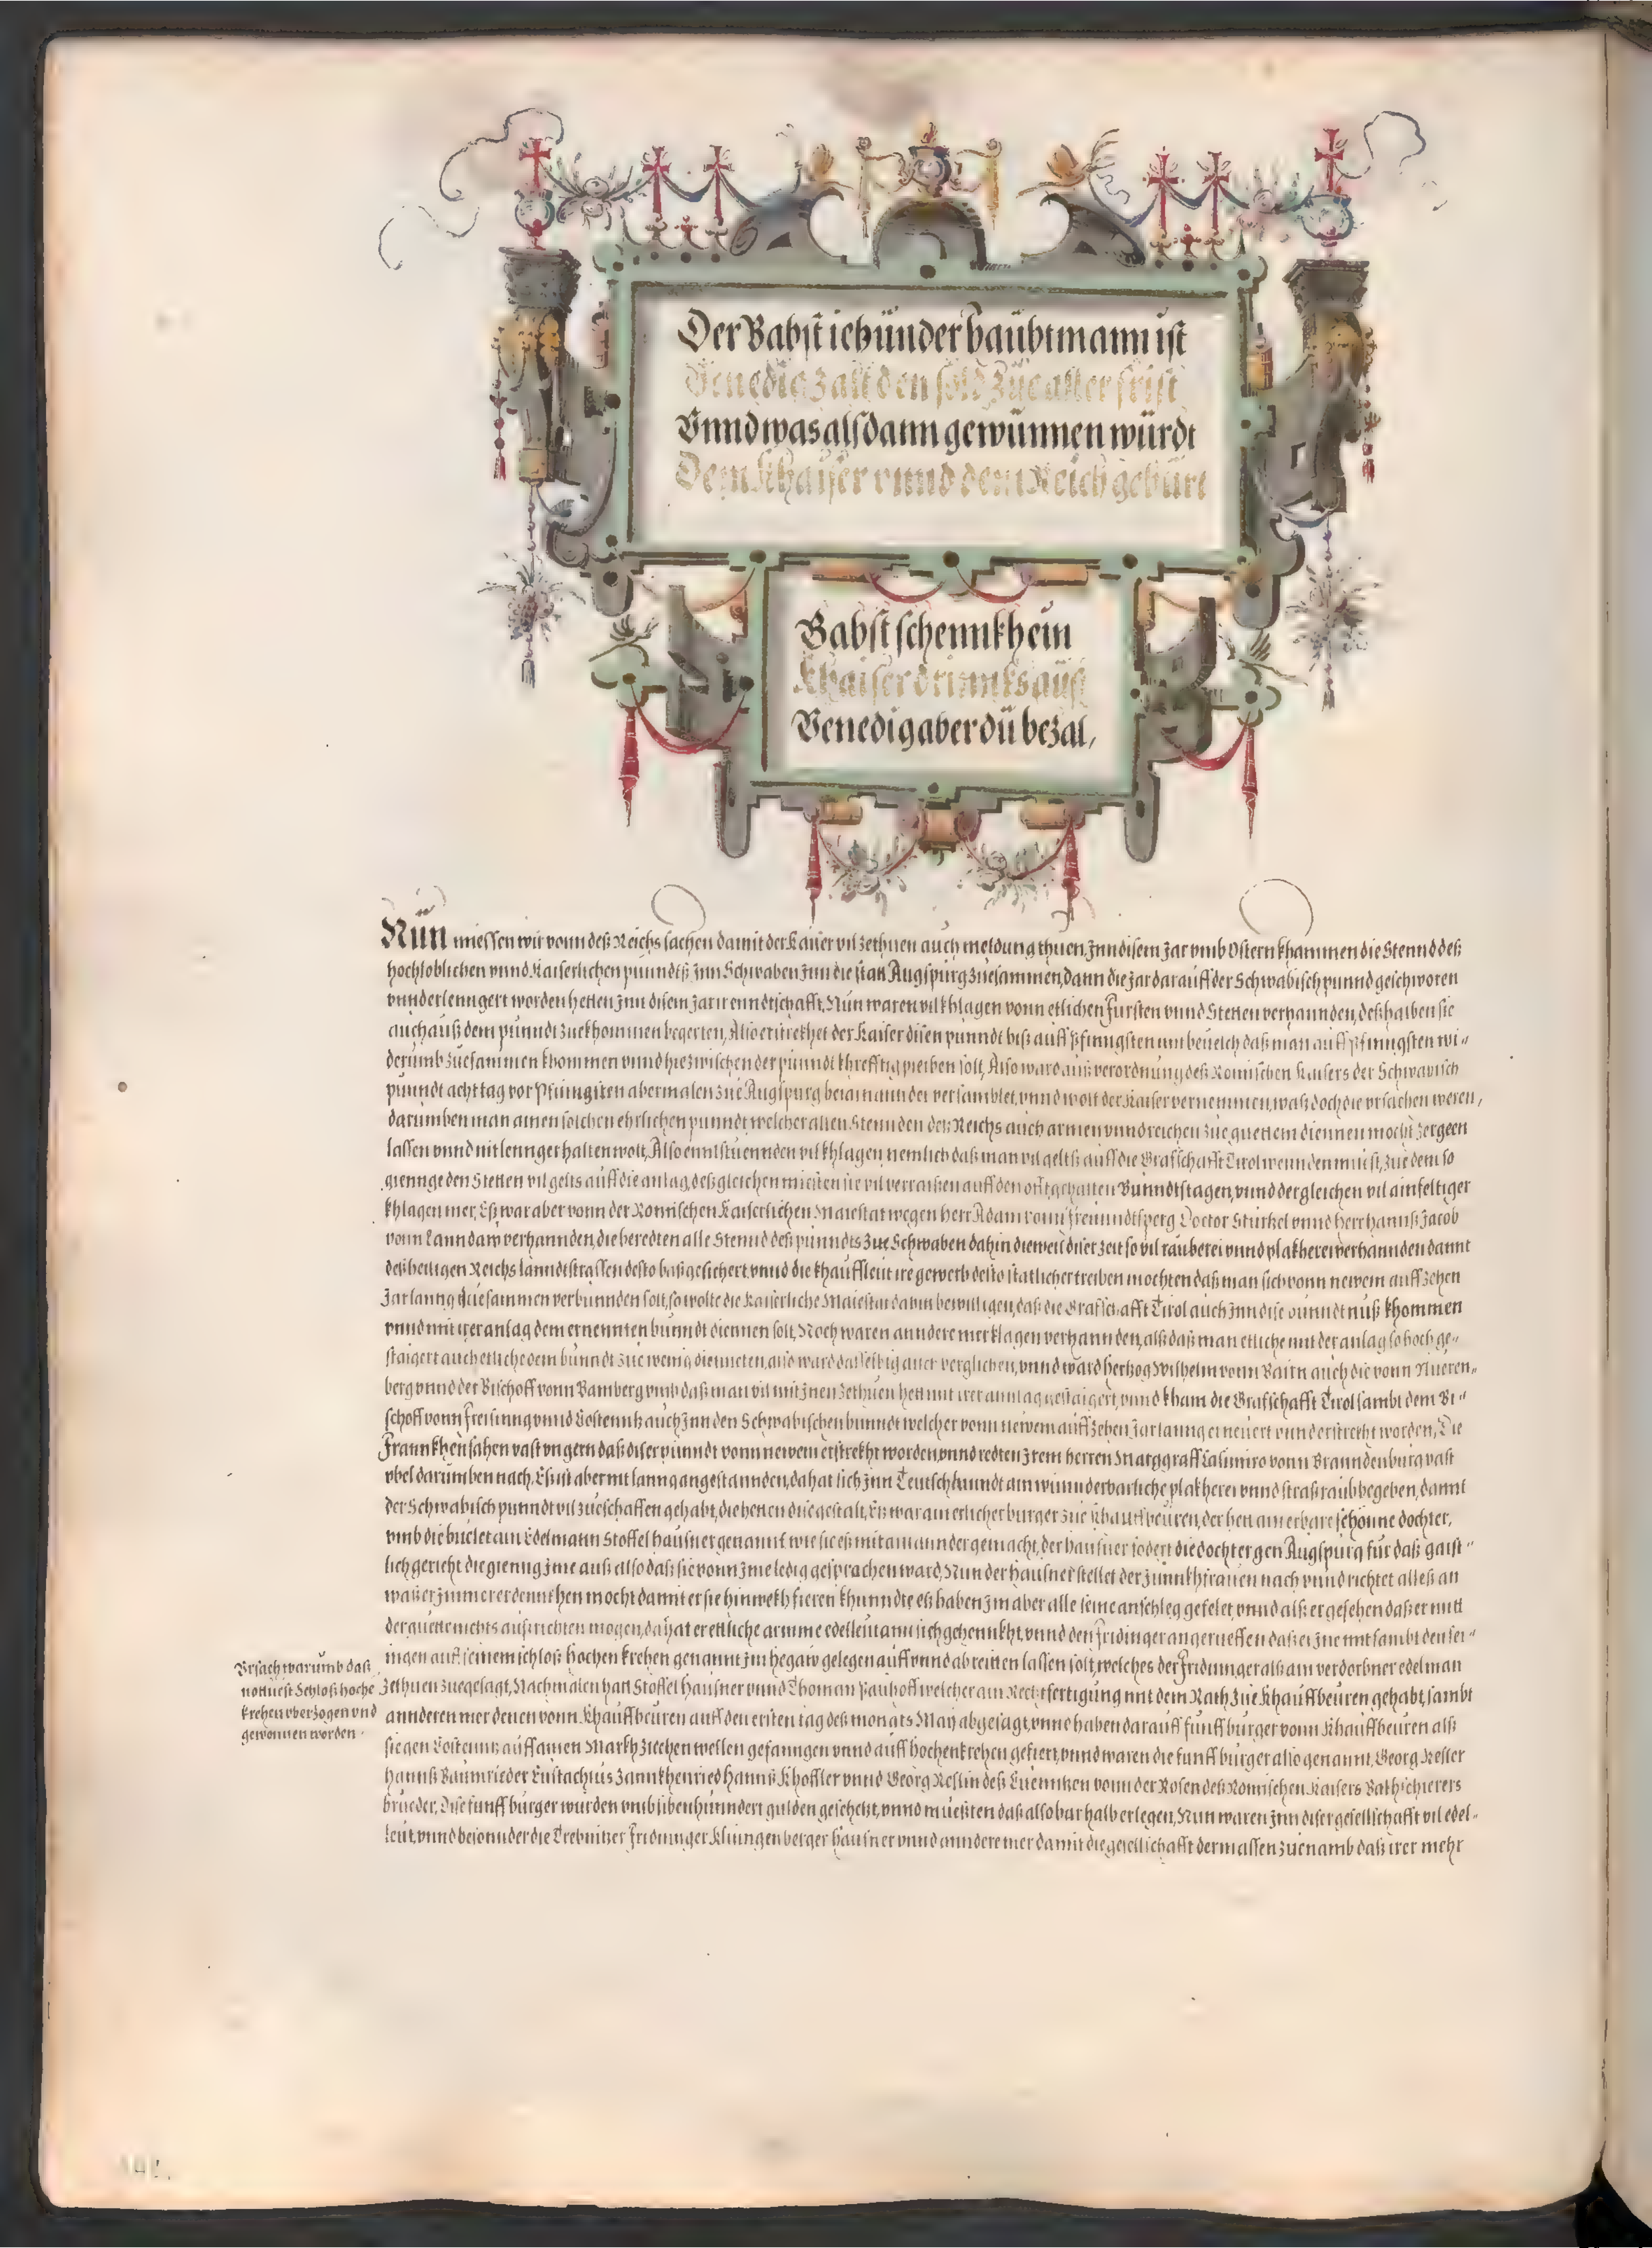 Der Babst ietzünder haübtmann ist
Venedig zalt den sold züe aller frist
Vnnd was alsdann gewünnen würdt
Dem Khaiser vnnd dem Reich gebürt
Babst schennkh ein
Khaiser drinnks aüß
Venedig aber dü bezal,
Nün miessen wir vonn deß Reichs sachen damit der Kaiser vil zethuen auch meldung thuen, Jnn disem Jar vmb Ostern khammen die Stennd deß
hochloblichen vnnd Kaiserlichen püundts jnn Schwaben jnn die stat Augspürg züesammen, dann die Jar darauff der Schwäbisch punnd geschworen
vnnderlenngert worden hetten jnn disem Jar ir enndtschafft, Nün waren vil khlagen vonn etlichen Fürsten vnnd Stetten verhannden, deßhalben sie
auch auß dem punndt zuekhommen begerten, Also erstrekhet der Kaiser disen punndt biß auff Pfinngsten mit beuelch daß man auff Pfinngsten wi-
derumb züesammen khommen vnnd hiezwischen der punndt khrefftig pleiben solt, Also ward auß verordnung deß Romischen Kaisers der Schwäbisch
püundt acht tag vor Pfinngsten abermalen züe Augspurg beiainannder versamblet, vnnd wolt der Kaiser vernemmen, waß doch die vrsachen weren,
darumben man ainen solchen ehrlichen punndt welcher allen Stennden deß Reichs auch armen vnnd reichen züe guettem diennen mocht zergeen
lassen vnnd nit lennger halten wolt, Also enntstuennden vil khlagen, nemlich daß man vil gelts auff die Grafschafft Tirol wennden müest, züe dem so
gienge den Stetten vil gelts auff die anlag, deßgleichen müesten sie vil verraisen auff den offt gehalten Bunndtstagen, vnnd dergleichen vil ainfeltiger
khlagen mer, Eß war aber vonn der Romischen Kaiserlichen Maiestat wegen herr Adam vonn Freünndtsperg Doctor Stürkel vnnd herr Hannß Jacob
vonn Lanndaw verhannden, die beredten alle Stennd deß punndts züe Schwaben dahin dieweil diser zeit so vil rauberei vnnd plakherei verhannden damit
deß heiligen Reichs lanndtstrassen desto baß gesichert, vnnd die khaüffleüt ire gewerb desto statlicher treiben mochten daß man sich vonn newem auff zehen
Jar lanng züesammen verbünnden solt, so wolte die Kaiserliche Maiestat darin bewilligen, daß die Grafschafft Tirol auch jnn dise bünndtnuß khommen
vnnd mit irer anlag dem ernennten bunndt diennen solt, Noch waren anndere mer klagen verhannden, alß daß man etliche mit der anlag so hoch ge-
staigert auch etliche dem bunndt züe wenig dienneten, also ward dasselbig auch verglichen, vnnd ward herzog Wilhelm vonn Bairn auch die vonn Nüeren-
berg vnnd der Bischoff vonn Bamberg vmb daß man vil mit jnen zethuen hett mit irer annlag gestaigert, vnnd kham die Grafschafft Tirol sambt dem Bi-
schoff vonn Freisinng vnnd Costenntz auch jnn den Schwabischen bunndt welcher vonn newem auff zehen Jar lanng erneüert vnnd erstrekt worden, Die
Frannkhen sahen vast vngern daß diser punndt vonn newem erstrekht worden, vnnd redten jrem herren Marggraff Casimiro vonn Branndenburg vast
vbel darumben nach, Es ist aber nit lanng angestannden, da hat sich jnn Teütschlanndt ain wunnderbarliche plakherei vnnd straßraub begeben, damit
der Schwäbisch punndt vil züeschaffen gehabt, die hetten dise gestalt, Es war ain erlicher burger züe Khauffbeüren, der hett ain erbare schonne dochter,
vmb die büelet ain Edelmann Stoffel haüsner genannt wie sie eß mit ainannder gemacht, der haüsner fodert die dochter gen Augspurg für daß gaist-
lich gericht die gienng jme auß also daß sie vonn jme ledig gesprachen ward, Nun der haüsner stellet der Junnkhfrauen nach vnnd richtet alleß an
waß er jmmer erdennkhen mocht damit er sie hinwekh fieren khünndte eß haben jm aber alle seine anschleg gefelet, vnnd alß er gesehen daß er mit
der güette nichts außrichten mogen, da hat er ettliche armme edelleüt ann sich gehennkht, vnnd den Fridinger angerueffen daß er jne mit sambt den sei-
nigen auff seinem schloß hochen krehen genannt jm hegaw gelegen auff vnnd ab reitten lassen solt, welches der Fridinnger alß ain verdorbner edelman
zethuen zuegesagt, Nachmalen hatt Stoffel haüsner vnnd Thoman Paühoff welcher ain Rechtfertigung mit dem Rath züe Khauffbeuren gehabt, sambt
annderen mer denen vonn Khauffbeüren auff den ersten tag deß monats May abgesagt, vnnd haben darauff fünff bürger vonn Khauffbeüren alß
sie gen Costenntz auff ainen Markh ziechen wellen gefanngen vnnd auff hochenkrehen gefiert, vnnd waren die fünff burger also genannt, Georg Resler
Hannß Baumrieder Eüstachius Zannkhenried Hannß Khoffler vnnd Georg Reslin deß Cuenntzen vonn der Rosen deß Romischen Kaisers Rathschierers
brüeder, Dise fünff bürger würden vmb sibenhünndert gülden geschetzt, vnnd müeßten daß also bar halb erlegen, Nun waren jnn diser gesellschafft vil edel-
leüt, vnnd besonnder die Trebnitzer Fridinnger Klinngenberger haüsner vnnd anndere mer damit die gesellschafft dermassen züenamb daß irer mehr
Vrsach warumb daß
nottuest Schloß hoche
krehen vberzogen vnd
gewonnen worden.